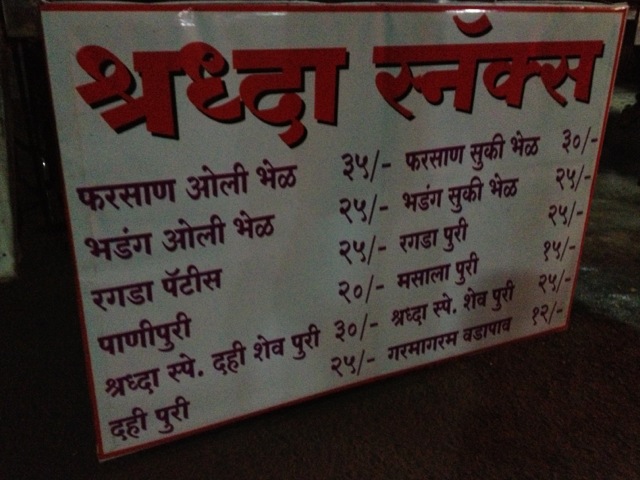 श्रध्दा स्नॅक्स
फरसाण ओली भेळ ३५/-
भडंग ओली भेळ २५/-
रगडा पॅटीस २५/-
पाणीपुरी २०/-
श्रध्दा स्पे. दही शेव पुरी ३०/-
दही पुरी २५/-
फरसाण सुकी भेळ ३०/-
भडंग सुकी भेळ २५/-
रगडा पुरी २५/-
मसाला पुरी १५/-
श्रध्दा स्पे. शेव पुरी २५/-
गरमागरम वडापाव १२/-